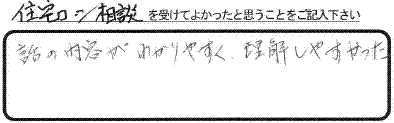 住宅ローン相談を受けてよかったと思うことをご記入下さい
話の内容がわかりやすく、理解しやすかった